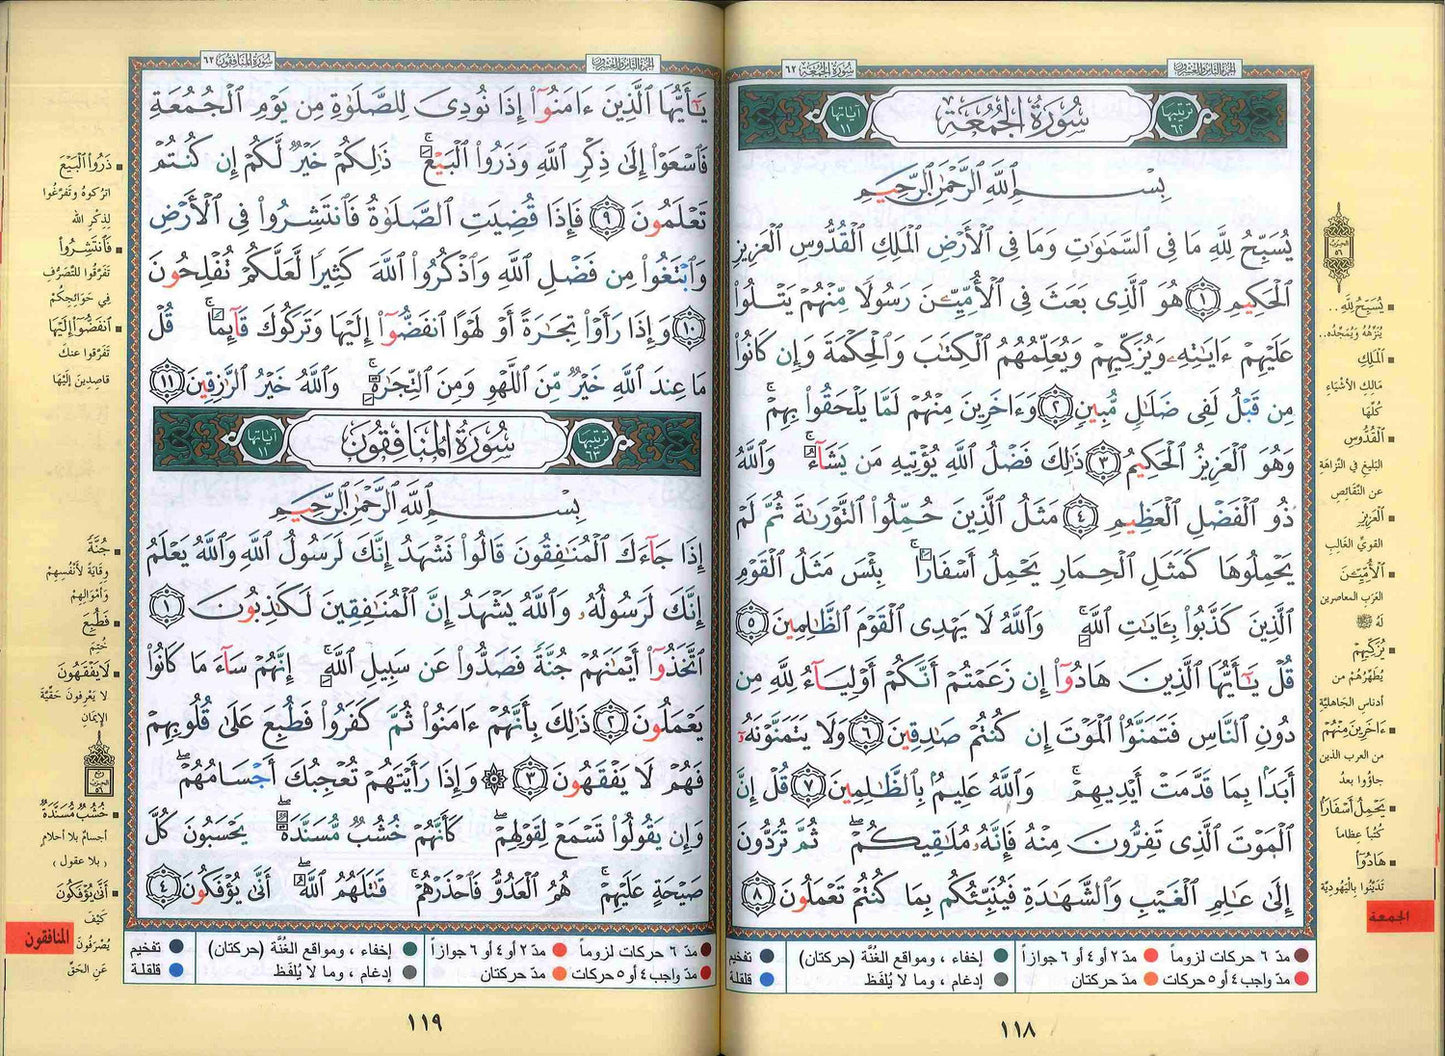 الجزء الثامن والعشرون
سورة الجمعة ٦٢
ترتيبها ٦٢
سُورَةُ الجُمُعَة
آياتها ١١
بِسْمِ ٱللَّهِ ٱلرَّحْمَٰنِ ٱلرَّحِيمِ
يُسَبِّحُ لِلَّهِ مَا فِى ٱلسَّمَٰوَٰتِ وَمَا فِى ٱلْأَرْضِ ٱلْمَلِكِ ٱلْقُدُّوسِ ٱلْعَزِيزِ
ٱلْحَكِيمِ ١ هُوَ ٱلَّذِى بَعَثَ فِى ٱلْأُمِّيِّـۧنَ رَسُولًا مِّنْهُمْ يَتْلُوا۟
عَلَيْهِمْ ءَايَٰتِهِۦ وَيُزَكِّيهِمْ وَيُعَلِّمُهُمُ ٱلْكِتَٰبَ وَٱلْحِكْمَةَ وَإِن كَانُوا۟
مِن قَبْلُ لَفِى ضَلَٰلٍ مُّبِينٍ ٢ وَءَاخَرِينَ مِنْهُمْ لَمَّا يَلْحَقُوا۟ بِهِمْ ۚ
وَهُوَ ٱلْعَزِيزُ ٱلْحَكِيمُ ٣ ذَٰلِكَ فَضْلُ ٱللَّهِ يُؤْتِيهِ مَن يَشَآءُ ۚ وَٱللَّهُ
ذُو ٱلْفَضْلِ ٱلْعَظِيمِ ٤ مَثَلُ ٱلَّذِينَ حُمِّلُوا۟ ٱلتَّوْرَىٰةَ ثُمَّ لَمْ
يَحْمِلُوهَا كَمَثَلِ ٱلْحِمَارِ يَحْمِلُ أَسْفَارًۢا ۚ بِئْسَ مَثَلُ ٱلْقَوْمِ
ٱلَّذِينَ كَذَّبُوا۟ بِـَٔايَٰتِ ٱللَّهِ ۚ وَٱللَّهُ لَا يَهْدِى ٱلْقَوْمَ ٱلظَّٰلِمِينَ ٥
قُلْ يَٰٓأَيُّهَا ٱلَّذِينَ هَادُوٓا۟ إِن زَعَمْتُمْ أَنَّكُمْ أَوْلِيَآءُ لِلَّهِ مِن
دُونِ ٱلنَّاسِ فَتَمَنَّوُا۟ ٱلْمَوْتَ إِن كُنتُمْ صَٰدِقِينَ ٦ وَلَا يَتَمَنَّوْنَهُۥٓ
أَبَدًۢا بِمَا قَدَّمَتْ أَيْدِيهِمْ ۚ وَٱللَّهُ عَلِيمٌۢ بِٱلظَّٰلِمِينَ ٧ قُلْ إِنَّ
ٱلْمَوْتَ ٱلَّذِى تَفِرُّونَ مِنْهُ فَإِنَّهُۥ مُلَٰقِيكُمْ ۖ ثُمَّ تُرَدُّونَ
إِلَىٰ عَٰلِمِ ٱلْغَيْبِ وَٱلشَّهَٰدَةِ فَيُنَبِّئُكُم بِمَا كُنتُمْ تَعْمَلُونَ ٨
يُسَبِّحُ لِلَّهِ ..
يُنَزِّهُهُ وَيُمَجِّدُه..
ٱلْمَلِكِ
مَالِكِ الأشْيَاءِ
كُلِّهَا
ٱلْقُدُّوسِ
البَلِيغِ فِي النَّزَاهَةِ
عن النَّقَائِصِ
ٱلْعَزِيزِ
القَويِّ الغَالِبِ
ٱلْأُمِّيِّـۧنَ
العَرَبِ المعاصرين
لَهُ ﷺ
يُزَكِّيهِمْ
يُطَهِّرُهُمْ من
أدناسِ الجَاهليَّةِ
ءَاخَرِينَ مِنْهُمْ
من العرب الذين
جاؤوا بعدُ
يَحْمِلُ أَسْفَارًۢا
كُتُباً عِظَاماً
هَادُوٓا۟
تَدَيَّنُوا بِالْيَهُوديَّةِ
الجمعة
مدّ ٦ حركات لزوماً
مدّ ٢ أو ٤ أو ٦ جوازاً
إخفاء ، ومواقع الغُنَّة (حركتان)
تفخيم
مدّ واجب ٤ أو ٥ حركات
مدّ حركتان
إدغام ، وما لا يُلفَظ
قلقلة
١١٨
الجزء الثامن والعشرون
سورة المنافقون ٦٣
يَٰٓأَيُّهَا ٱلَّذِينَ ءَامَنُوٓا۟ إِذَا نُودِىَ لِلصَّلَوٰةِ مِن يَوْمِ ٱلْجُمُعَةِ
فَٱسْعَوْا۟ إِلَىٰ ذِكْرِ ٱللَّهِ وَذَرُوا۟ ٱلْبَيْعَ ۚ ذَٰلِكُمْ خَيْرٌ لَّكُمْ إِن كُنتُمْ
تَعْلَمُونَ ٩ فَإِذَا قُضِيَتِ ٱلصَّلَوٰةُ فَٱنتَشِرُوا۟ فِى ٱلْأَرْضِ
وَٱبْتَغُوا۟ مِن فَضْلِ ٱللَّهِ وَٱذْكُرُوا۟ ٱللَّهَ كَثِيرًا لَّعَلَّكُمْ تُفْلِحُونَ
١٠ وَإِذَا رَأَوْا۟ تِجَٰرَةً أَوْ لَهْوًا ٱنفَضُّوٓا۟ إِلَيْهَا وَتَرَكُوكَ قَآئِمًا ۚ قُلْ
مَا عِندَ ٱللَّهِ خَيْرٌ مِّنَ ٱللَّهْوِ وَمِنَ ٱلتِّجَٰرَةِ ۚ وَٱللَّهُ خَيْرُ ٱلرَّٰزِقِينَ ١١
ترتيبها ٦٣
سُورَةُ المنَافِقون
آياتها ١١
بِسْمِ ٱللَّهِ ٱلرَّحْمَٰنِ ٱلرَّحِيمِ
إِذَا جَآءَكَ ٱلْمُنَٰفِقُونَ قَالُوا۟ نَشْهَدُ إِنَّكَ لَرَسُولُ ٱللَّهِ وَٱللَّهُ يَعْلَمُ
إِنَّكَ لَرَسُولُهُۥ وَٱللَّهُ يَشْهَدُ إِنَّ ٱلْمُنَٰفِقِينَ لَكَٰذِبُونَ ١
ٱتَّخَذُوٓا۟ أَيْمَٰنَهُمْ جُنَّةً فَصَدُّوا۟ عَن سَبِيلِ ٱللَّهِ ۚ إِنَّهُمْ سَآءَ مَا كَانُوا۟
يَعْمَلُونَ ٢ ذَٰلِكَ بِأَنَّهُمْ ءَامَنُوا۟ ثُمَّ كَفَرُوا۟ فَطُبِعَ عَلَىٰ قُلُوبِهِمْ
فَهُمْ لَا يَفْقَهُونَ ٣ ۞ وَإِذَا رَأَيْتَهُمْ تُعْجِبُكَ أَجْسَامُهُمْ ۖ
وَإِن يَقُولُوا۟ تَسْمَعْ لِقَوْلِهِمْ ۖ كَأَنَّهُمْ خُشُبٌ مُّسَنَّدَةٌ ۖ يَحْسَبُونَ كُلَّ
صَيْحَةٍ عَلَيْهِمْ ۚ هُمُ ٱلْعَدُوُّ فَٱحْذَرْهُمْ ۚ قَٰتَلَهُمُ ٱللَّهُ ۖ أَنَّىٰ يُؤْفَكُونَ ٤
ذَرُوا۟ ٱلْبَيْعَ
اتركوهُ وتَفَرَّغُوا
لِذِكْرِ اللهِ
فَٱنتَشِرُوا۟
تَفَرَّقُوا للتَّصَرُّفِ
فِي حَوَائِجِكُمْ
ٱنفَضُّوٓا۟ إِلَيْهَا
تَفَرَّقوا عنكَ
قاصِدِينَ إلَيْهَا
جُنَّةً
وِقَايَةً لأنْفُسِهِمْ
وَأمْوَالِهِمْ
فَطُبِعَ
خُتِمَ
لَا يَفْقَهُونَ
لا يَعْرِفونَ حَقِّيَّةَ
الإيمَانِ
خُشُبٌ مُّسَنَّدَةٌ
أجسامٌ بلا أحلامٍ
( بلا عقول )
أَنَّىٰ يُؤْفَكُونَ
كَيْفَ
يُصْرَفُونَ
عَنِ الحَقِّ
المنافقون
مدّ ٦ حركات لزوماً
مدّ ٢ أو ٤ أو ٦ جوازاً
إخفاء ، ومواقع الغُنَّة (حركتان)
تفخيم
مدّ واجب ٤ أو ٥ حركات
مدّ حركتان
إدغام ، وما لا يُلفَظ
قلقلة
١١٩